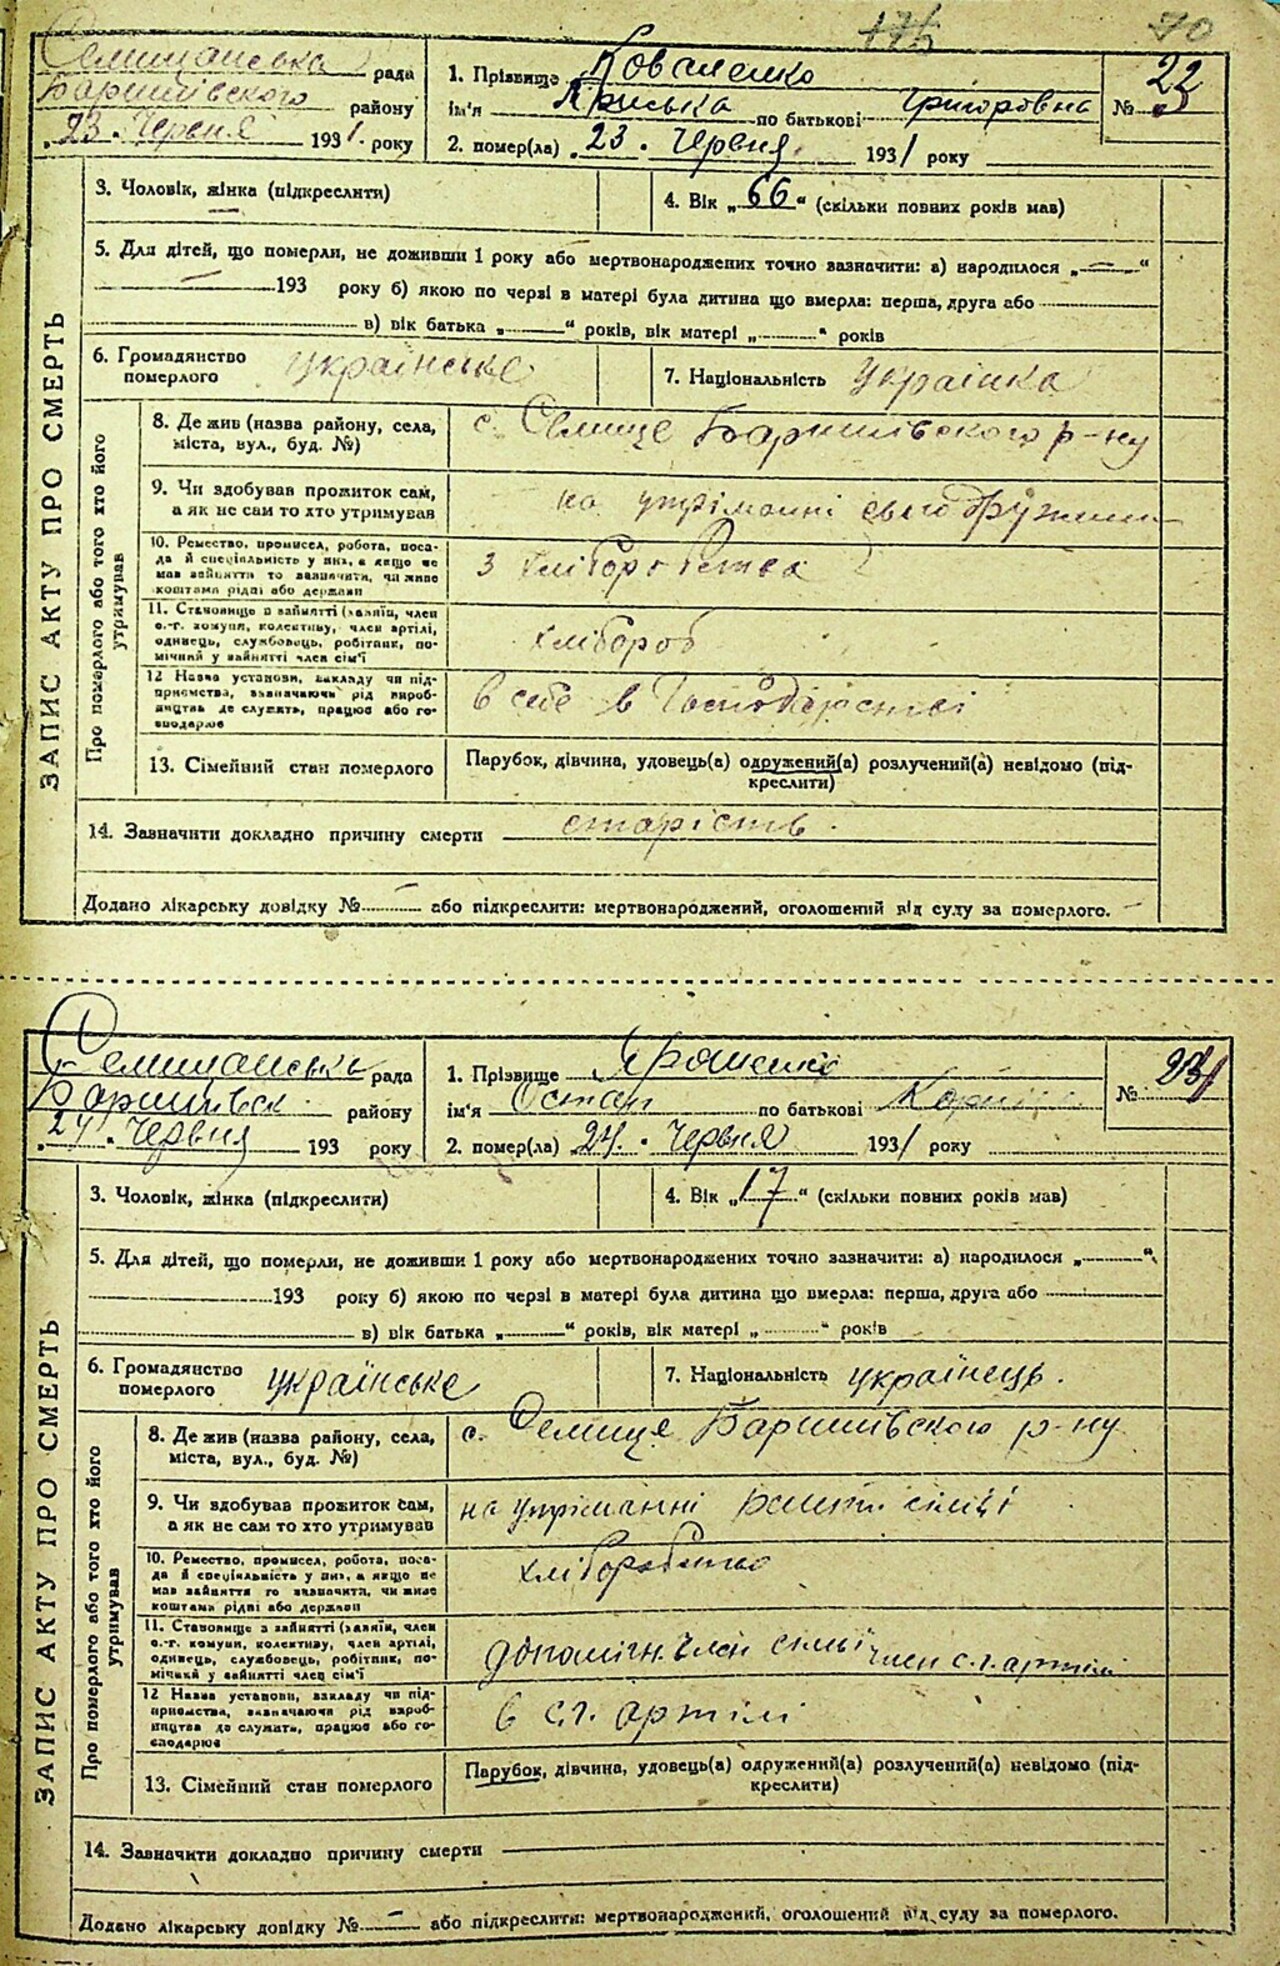 175 70
Селищанська рада
Баришівського району
„23“ Червня 1931 року
1. Прізвище Коваленко
ім'я Ариська по батькові Григоровна
№ 22
2. помер(ла) „23“ Червня 1931 року
3. Чоловік, жінка (підкреслити)
4. Вік „66“ (скільки повних років мав)
5. Для дітей, що померли, не доживши 1 року або мертвонароджених точно зазначити: а) народилося „—“
— 193 року б) якою по черзі в матері була дитина що вмерла: перша, друга або
в) вік батька „ “ років, вік матері „ “ років
6. Громадянство померлого українське
7. Національність Українка
ЗАПИС АКТУ ПРО СМЕРТЬ
Про померлого або того хто його утримував
8. Де жив (назва району, села,
міста, вул., буд. №)
с. Селище Баришівского р-ну
9. Чи здобував прожиток сам,
а як не сам то хто утримував
на утріманні свого дружини
10. Ремество, промисел, робота, поса-
да й спеціяльність у них, а якщо не
мав зайняття то зазначити, чи живе
коштами рідні або держави
з хліборобства
11. Становище в зайнятті (хазяїн, член
с.-г. комуни, колективу, член артілі,
одинець, службовець, робітник, по-
мічний у зайнятті член сім'ї
хлібороб
12 Назва установи, закладу чи під-
приємства, зазначаючи рід вироб-
ництва де служить, працює або го-
сподарює
в себе в Господарстві
13. Сімейний стан померлого
Парубок, дівчина, удовець(а) одружений(а) розлучений(а) невідомо (під-
креслити)
14. Зазначити докладно причину смерти старість.
Додано лікарську довідку №— або підкреслити: мертвонароджений, оголошений від суду за померлого.
Селищанськ рада
Баришивск району
„24“ Червня 193 року
1. Прізвище Ярошенко
ім'я Остап по батькові
№ 23
2. помер(ла) 24. Червня 1931 року
3. Чоловік, жінка (підкреслити)
4. Вік „17“ (скільки повних років мав)
5. Для дітей, що померли, не доживши 1 року або мертвонароджених точно зазначити: а) народилося „ “
193 року б) якою по черзі в матері була дитина що вмерла: перша, друга або
в) вік батька „ “ років, вік матері „ “ років
6. Громадянство померлого українське
7. Національність українець.
ЗАПИС АКТУ ПРО СМЕРТЬ
Про померлого або того хто його утримував
8. Де жив (назва району, села,
міста, вул., буд. №)
с. Селище Баришівского р-ну
9. Чи здобував прожиток сам,
а як не сам то хто утримував
на утріманні сімї
10. Ремество, промисел, робота, поса-
да й спеціяльність у них, а якщо не
мав зайняття то зазначити, чи живе
коштами рідні або держави
хліборобство
11. Становище в зайнятті (хазяїн, член
с.-г. комуни, колективу, член артілі,
одинець, службовець, робітник, по-
мічний у зайнятті член сім'ї
допоміжн. член сімьї член с.г. артілі
12 Назва установи, закладу чи під-
приємства, зазначаючи рід вироб-
ництва де служить, працює або го-
сподарює
в с.г. артілі
13. Сімейний стан померлого
Парубок, дівчина, удовець(а) одружений(а) розлучений(а) невідомо (під-
креслити)
14. Зазначити докладно причину смерти
Додано лікарську довідку №— або підкреслити: мертвонароджений, оголошений від суду за померлого.